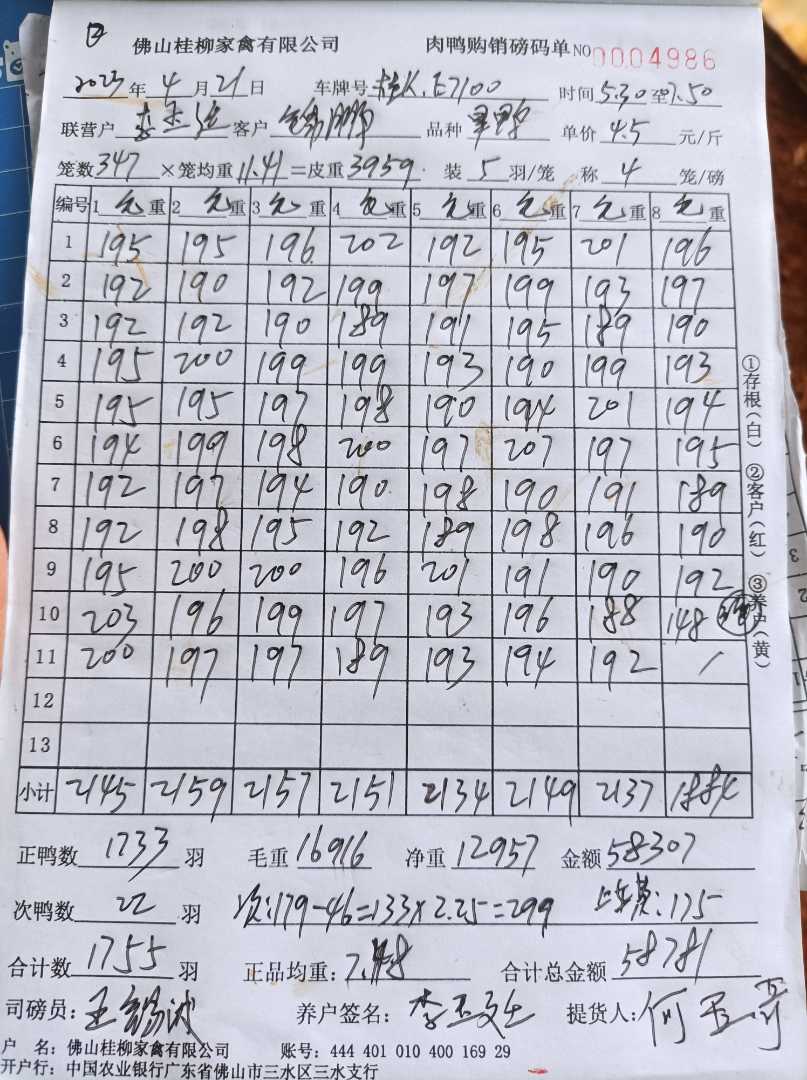 佛山桂柳家禽有限公司 肉鸭购销磅码单 NO 0004986
2023年4月21日 车牌号 桂K.E7100 时间5.30至7.50
联营户 李 客户 品种 单价 4.5 元/斤
笼数347×笼均重11.41=皮重3959. 装5羽/笼 称4笼/磅
编号 1毛重 2毛重 3毛重 4毛重 5毛重 6毛重 7毛重 8毛重
1 195 195 196 202 192 195 201 196
2 192 190 192 199 197 199 193 197
3 192 192 190 189 191 195 189 190
4 195 200 199 199 193 190 199 193
5 195 195 197 198 190 194 201 194
6 194 199 198 200 197 207 197 195
7 192 197 194 190 198 190 191 189
8 192 198 195 192 189 198 196 190
9 195 200 200 196 201 191 190 192
10 203 196 199 197 193 196 188 148
11 200 197 197 189 193 194 192 /
12
13
小计 2145 2159 2157 2151 2134 2149 2137 1884
①存根(白) ②客户(红) ③养户(黄)
正鸭数 1733 羽 毛重 16916 净重 12957 金额 58307
次鸭数 22 羽 次:179-46=133×2.25=299 上车费:175
合计数 1755 羽 正品均重:7.48 合计总金额 58781
司磅员:王锡波 养户签名:李 提货人:何
户 名:佛山桂柳家禽有限公司 账号:444 401 010 400 169 29
开户行:中国农业银行广东省佛山市三水区三水支行